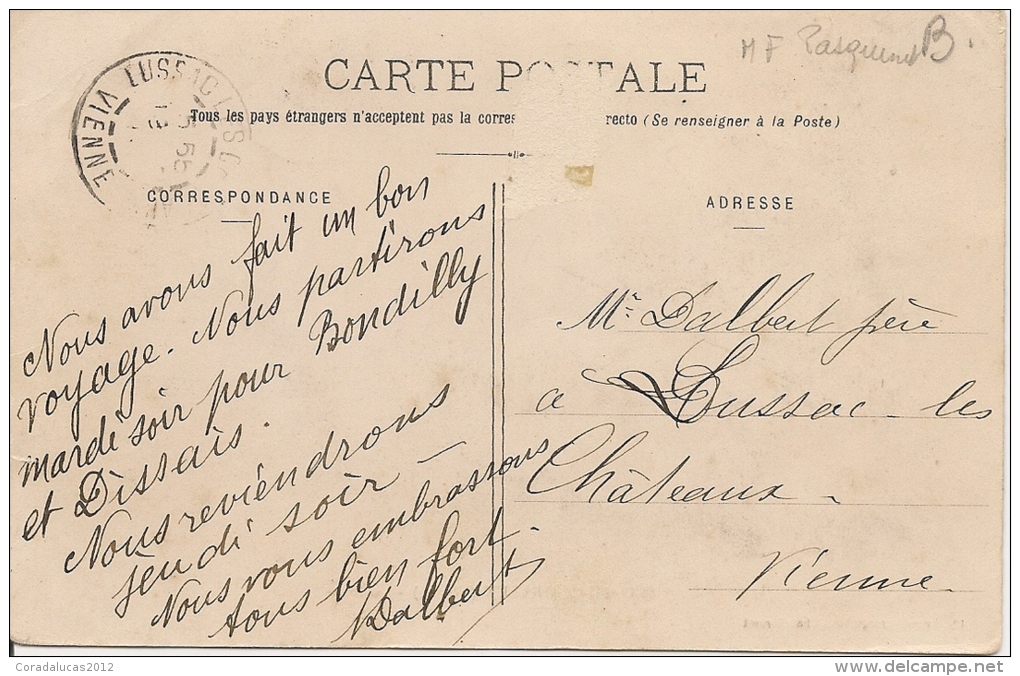 B.
CARTE P TALE
Tous les pays étrangers n'acceptent pas la corres recto (Se renseigner à la Poste)
LUSSAC
VIENNE
CORRESPONDANCE
Nous avons fait un bon
voyage. Nous partirons
mardi soir pour Bondilly
et Dissais.
Nous reviendrons
jeudi soir —
Nous vous embrassons
tous bien fort.
Dalbert
ADRESSE
Mr. Dalbert père
à Lussac-les
Châteaux -
Vienne
Coradalucas2012
delcampe.net